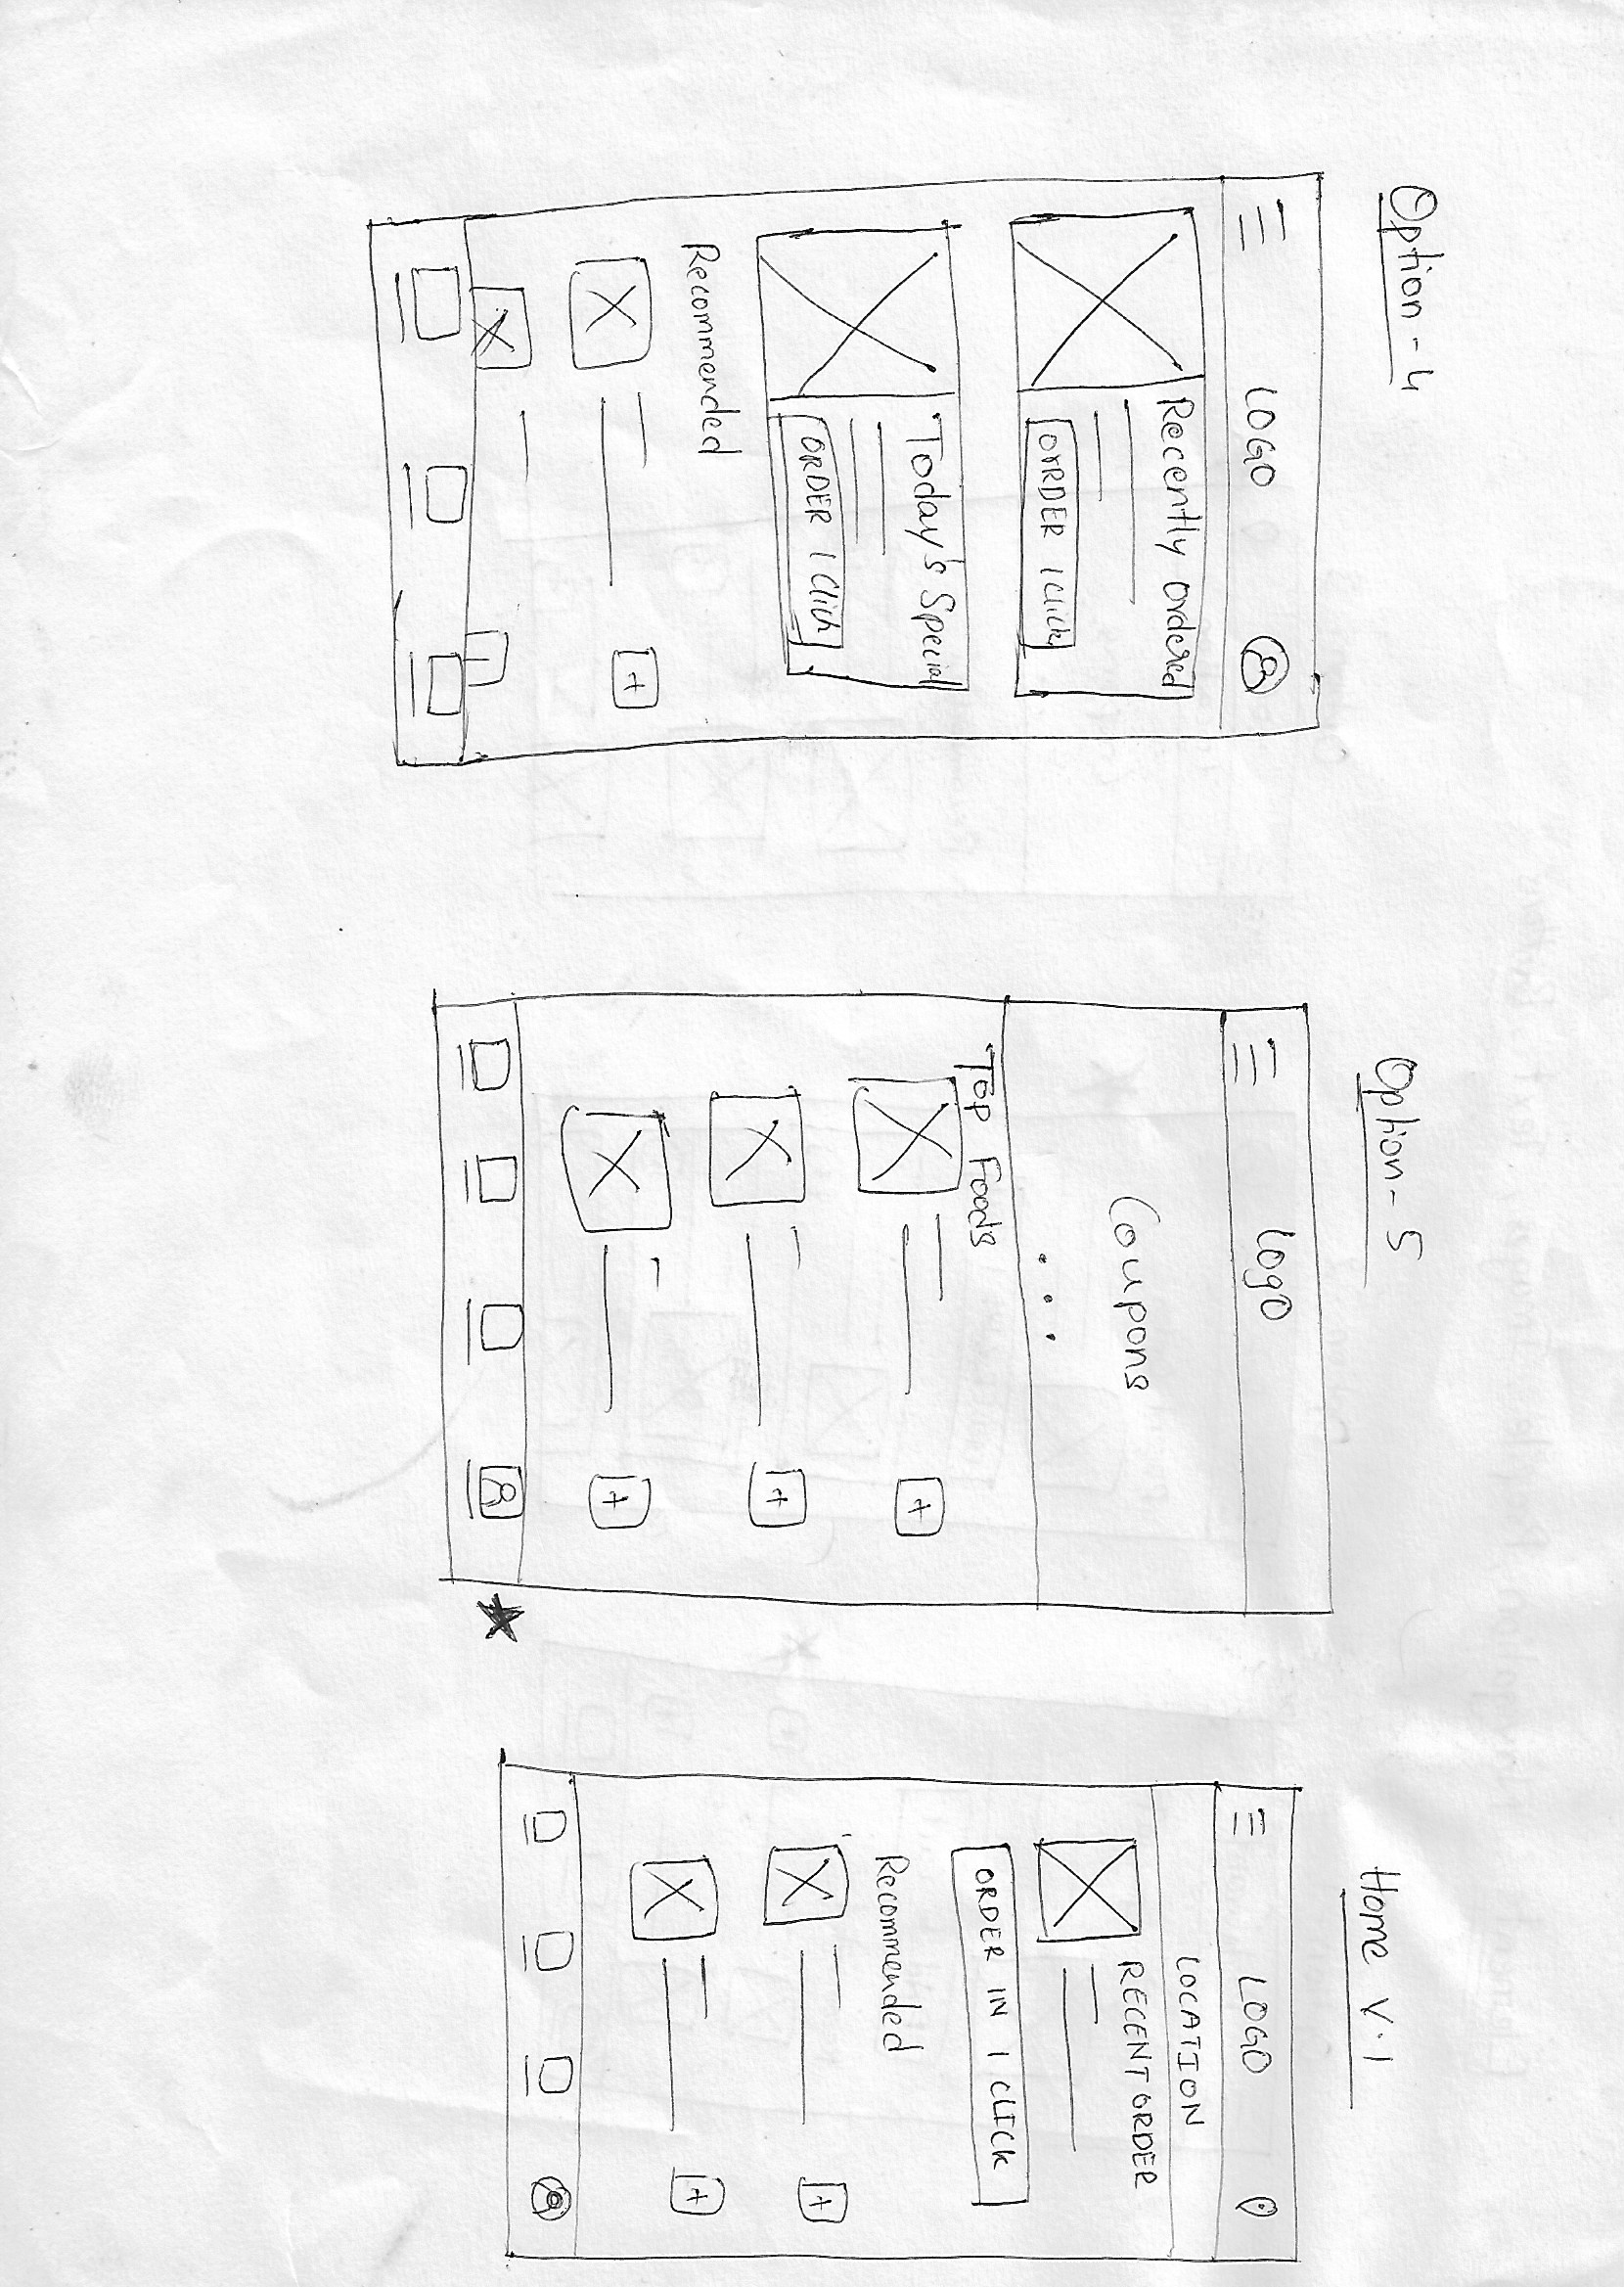 Option-4
LOGO
Recently Ordered
ORDER 1 Click
Today's Special
ORDER 1 Click
Recommended
+
Option-5
LogO
Coupons
Top Foods
+
+
+
Home V.1
LOGO
LOCATION
RECENT ORDER
ORDER IN 1 CLICK
Recommended
+
+